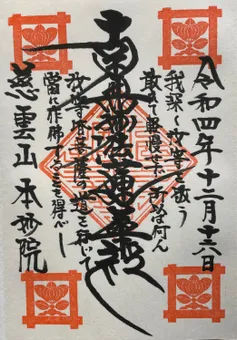 令和四年十二月
我深く汝等を敬う
敢て軽慢せず所以は何ん
南無妙法蓮華経
汝等皆菩薩の道を行じて
當に作佛することを得べし
慈雲山 本妙院